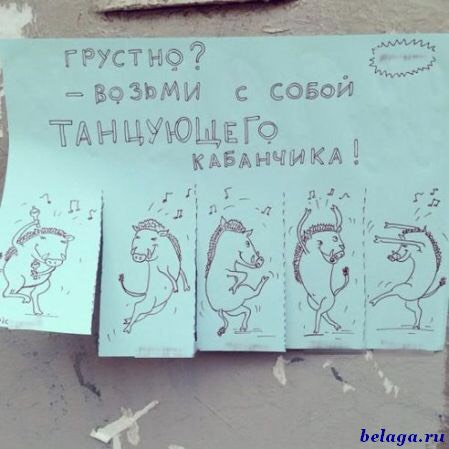 ГРУСТНО?
– ВОЗЬМИ С СОБОЙ
ТАНЦУЮЩЕГО
КАБАНЧИКА!
belaga.ru